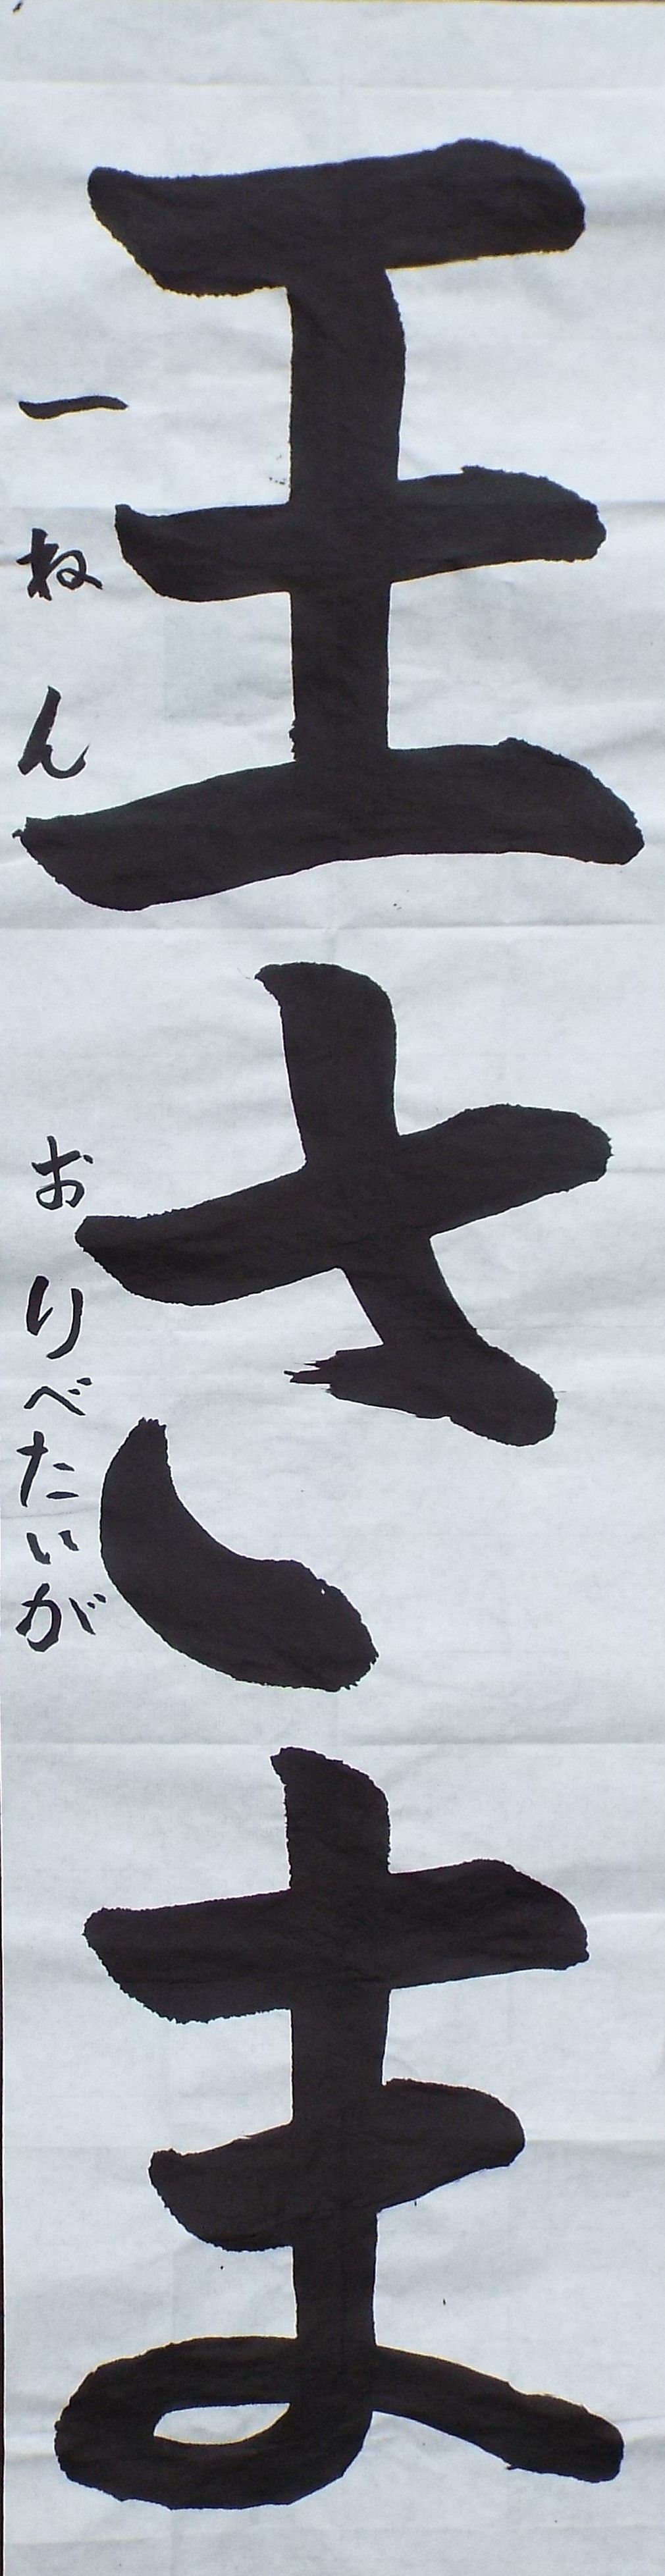 王さま
一ねん おりべたいが